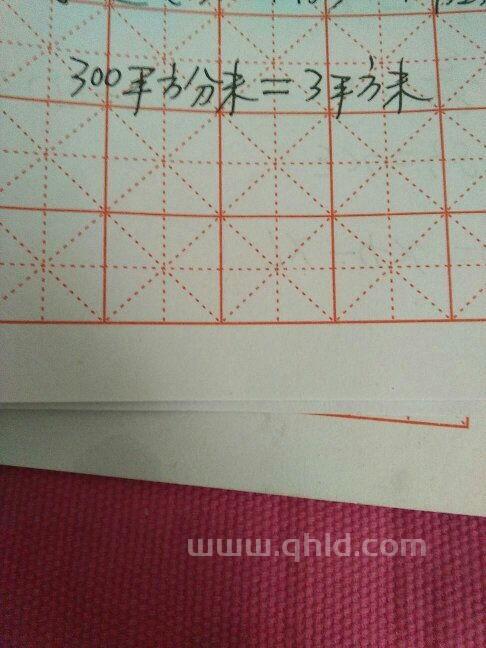 300平方分米=3平方米
www.qhld.com